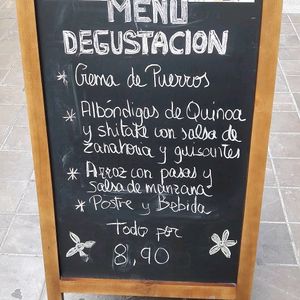 MENÚ
DEGUSTACION
* Crema de Puerros
* Albóndigas de Quinoa
y shitake con salsa de
zanahoria y guisantes
* Arroz con pasas y
salsa de manzana
* Postre y Bebida
Todo por
8,90